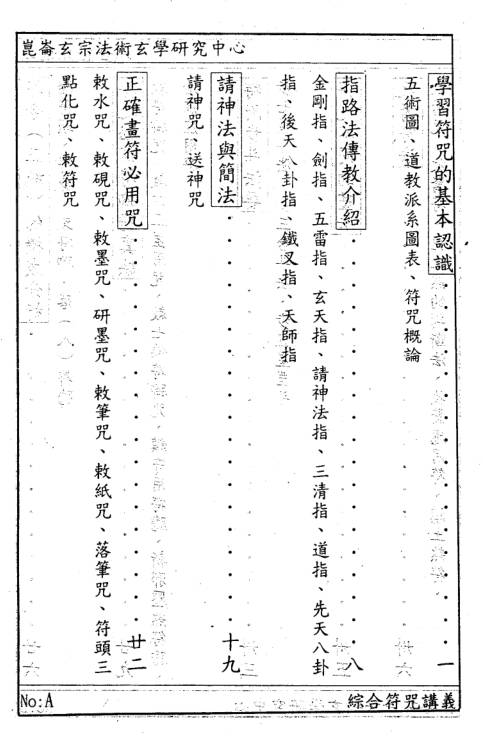 崑崙玄宗法術玄學研究中心
學習符咒的基本認識・・・・・・・・・・・・・・・一
五術圖、道教派系圖表、符咒概論
指路法傳教介紹・・・・・・・・・・・・・・・八
金剛指、劍指、五雷指、玄天指、請神法指、三清指、道指、先天八卦
指、後天八卦指、鐵叉指、天師指
請神法與簡法・・・・・・・・・・・・・・・十九
請神咒、送神咒
正確畫符必用咒・・・・・・・・・・・・・・・廿二
敕水咒、敕硯咒、敕墨咒、研墨咒、敕筆咒、敕紙咒、落筆咒、符頭三
點化咒、敕符咒
No:A
綜合符咒講義